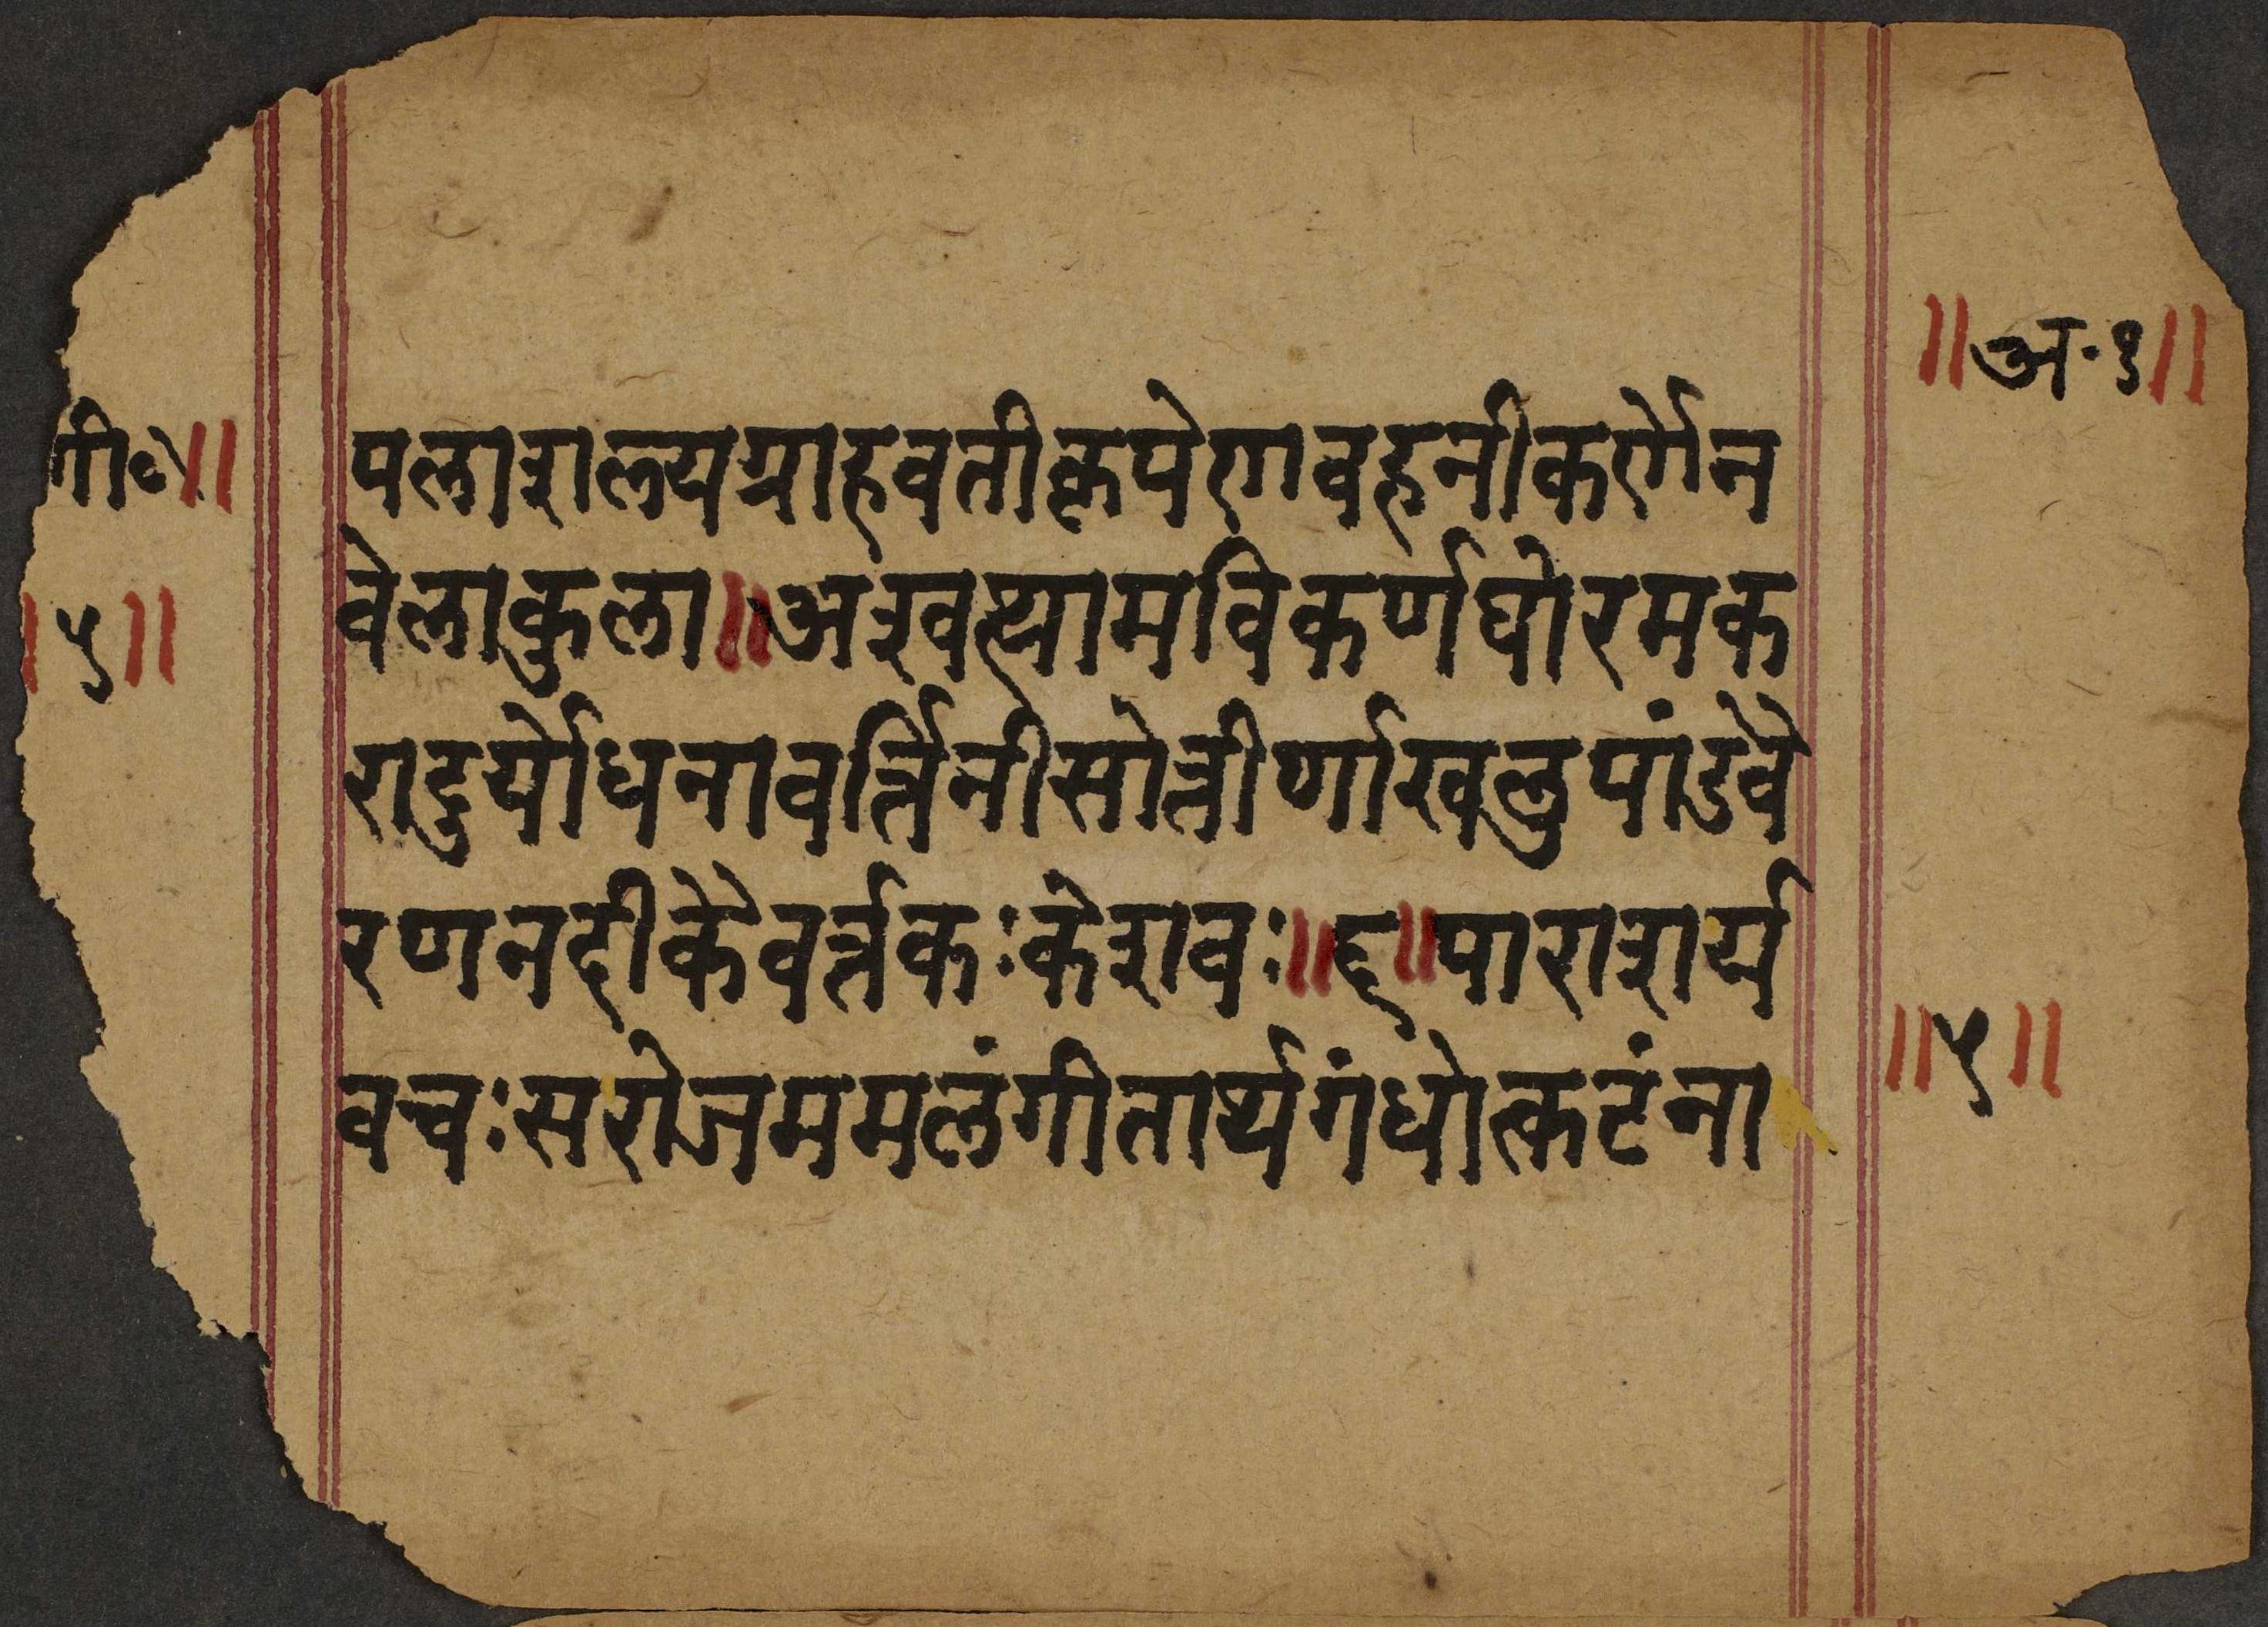 ॥अ॰१॥
गी॰॥
पलाशल्यग्राहवतीकृपेणवहनीकर्णेन
॥५॥
वेलाकुला॥अश्वत्थामविकर्णघोरमक
रादुर्योधनावर्त्तिनीसोत्तीर्णाखलुपांडवै
रणनदीकैवर्त्तकःकेशवः॥६॥पाराशर्य
॥५॥
वचःसरोजममलंगीतार्थगंधोत्कटंना